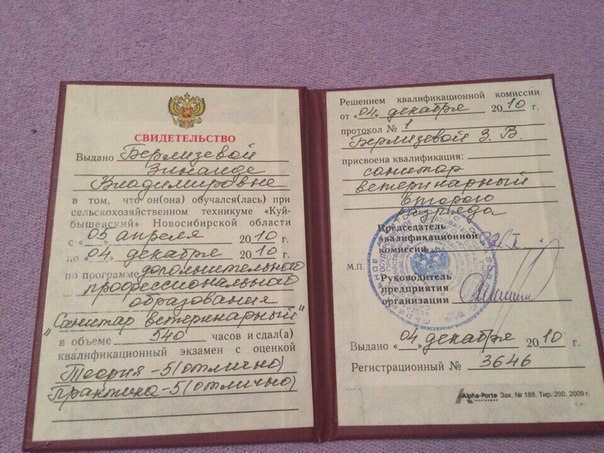 СВИДЕТЕЛЬСТВО
Выдано Берлизевой
Зинаиде
Владимировне
в том, что он(она) обучался(лась) при
сельскохозяйственном техникуме «Куй-
бышевский» Новосибирской области
с «05» апреля 2010 г.
по «04» декабря 2010 г.
по программе дополнительного
профессионального
образования
"Санитар ветеринарный"
в объеме 540 часов и сдал(а)
квалификационный экзамен с оценкой
Теория -5(отлично)
Практика-5(отлично)
Решением квалификационной комиссии
от «04» декабря 2010 г.
протокол № 1
Берлизевой З. В.
присвоена квалификация:
санитар
ветеринарный
второго
разряда
Председатель
квалификационной
комиссии
М.П.
Руководитель
предприятия
организации
Выдано «04» декабря 2010 г.
Регистрационный № 3646
Alpha-Porte Зак. № 188. Тир. 200. 2009 г.